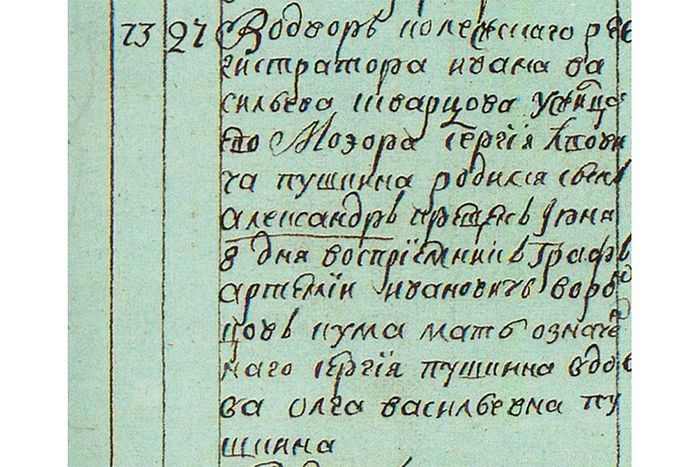 13 27 Водворѣ колежскаго рѣ
гистратора ивана ва
сильева шварцова ужилца
его Моэора Сергия львови
ча пушкина родился сынъ
александръ крещенъ июня
8 дня восприемникъ графъ
артемии ивановичь ворон
цовъ кума мать означен
наго сергия пушкина вдов
ва олга васильевна пу
шкина